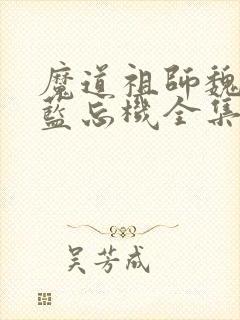 魔道祖師魏
藍忘機全集
吴芳成